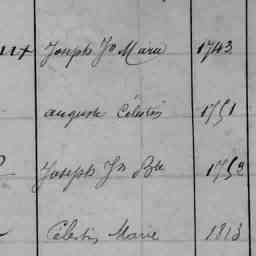 Joseph Jn Marie 1743
auguste Célestin 1751
Joseph Jn Bte 1753
Célestin Marie 1813